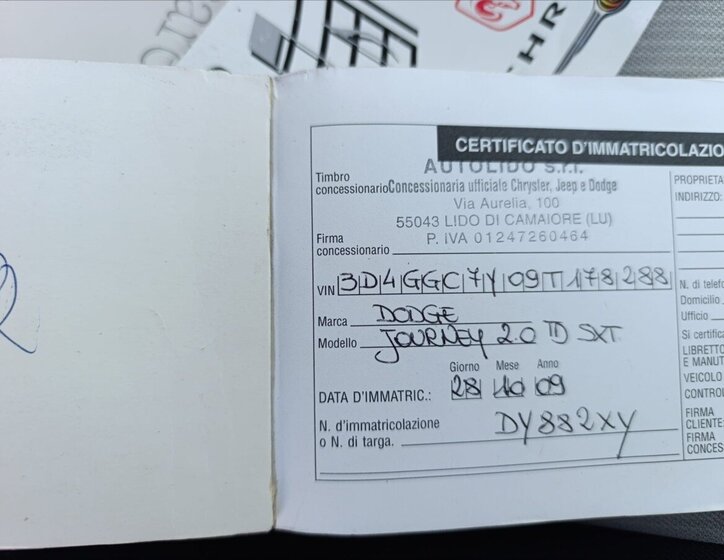 CHR
CERTIFICATO D'IMMATRICOLAZIO
AUTOLIDO S.r.l.
Timbro
concessionario
Concessionaria ufficiale Chrysler, Jeep e Dodge
Via Aurelia, 100
55043 LIDO DI CAMAIORE (LU)
Firma
concessionario
P. IVA 01247260464
VIN 3D4GGC7Y09T178288
Marca DODGE
Modello JOURNEY 2.0 TD SXT
Giorno Mese Anno
DATA D'IMMATRIC.: 28 10 09
N. d'immatricolazione
o N. di targa. DY882XY
PROPRIETA
INDIRIZZO:
N. di telef
Domicilio
Ufficio
Si certifica
LIBRETTO
E MANUT
VEICOLO
CONTROL
FIRMA
CLIENTE:
FIRMA
CONCES